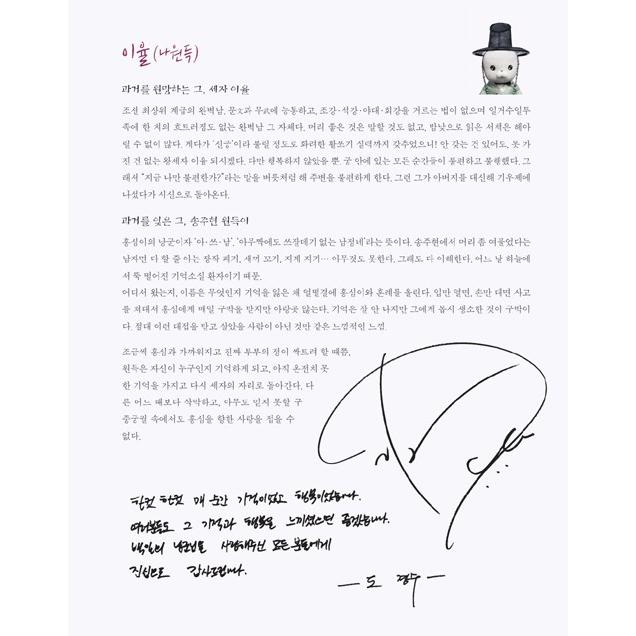 이율(나원득)
과거를 원망하는 그, 세자 이율
조선 최상위 계급의 완벽남, 문文과 무武에 능통하고, 조강·석강·야대·회강을 거르는 법이 없으며 일거수일투
족에 한 치의 흐트러짐도 없는 완벽남 그 자체다. 머리 좋은 것은 말할 것도 없고, 밤낮으로 읽은 서책은 헤아
릴 수 없이 많다. 게다가 '신궁'이라 불릴 정도로 화려한 활쏘기 실력까지 갖추었으니! 안 갖는 건 있어도, 못 가
진 건 없는 왕세자 이율 되시겠다. 다만 행복하지 않았을 뿐. 궁 안에 있는 모든 순간들이 불편하고 불행했다. 그
래서 "지금 나만 불편한가?"라는 말을 버릇처럼 해 주변을 불편하게 한다. 그런 그가 아버지를 대신해 기우제에
나섰다가 시신으로 돌아온다.
과거를 잊은 그, 송주현 원득이
홍심이의 낭군이자 '아·쓰·남'. '아무짝에도 쓰잘데기 없는 남정네'라는 뜻이다. 송주현에서 머리 좀 여물었다는
남자면 다 할 줄 아는 장작 패기, 새끼 꼬기, 지게 지기… 아무것도 못한다. 그래도 다 이해한다. 어느 날 하늘에
서 뚝 떨어진 기억소실 환자이기 때문.
어디서 왔는지, 이름은 무엇인지 기억을 잃은 채 얼떨결에 홍심이와 혼례를 올린다. 입만 열면, 손만 대면 사고
를 쳐대서 홍심에게 매일 구박을 받지만 아랑곳 않는다. 기억은 잘 안 나지만 그에게 몹시 생소한 것이 구박이
다. 절대 이런 대접을 받고 살았을 사람이 아닌 것만 같은 느낌적인 느낌.
조금씩 홍심과 가까워지고 진짜 부부의 정이 싹트려 할 때쯤,
원득은 자신이 누구인지 기억하게 되고, 아직 온전치 못
한 기억을 가지고 다시 세자의 자리로 돌아간다. 다
른 어느 때보다 삭막하고, 아무도 믿지 못할 구
중궁궐 속에서도 홍심을 향한 사랑을 접을 수
없다.
한컷 한컷 매 순간 기적이었고 행복이었습니다.
여러분들도 그 기적과 행복을 느끼셨으면 좋겠습니다.
백일의 낭군님을 사랑해주신 모든 분들에게
진심으로 감사드립니다.
— 도 경수 —